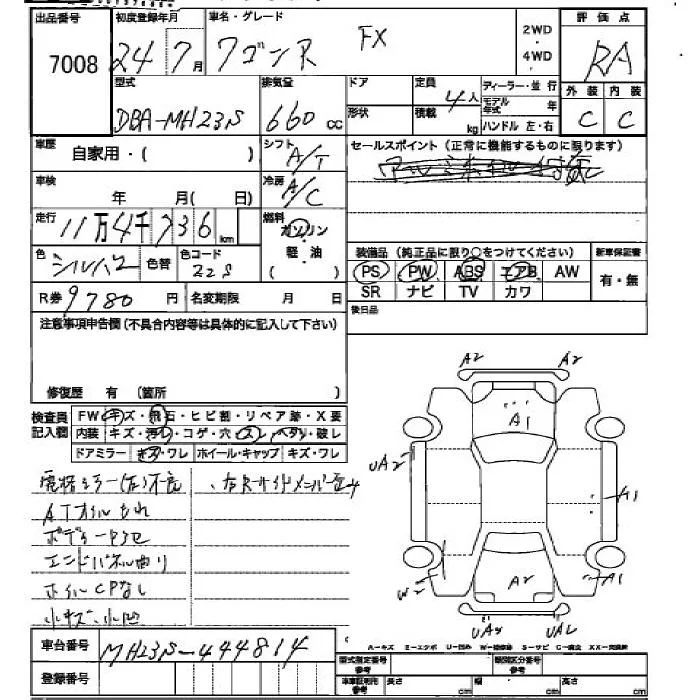 出品番号 初度登録年月 車名・グレード 2WD・4WD 評価点
7008 24年7月 ワゴンR FX RA
型式 排気量 ドア 定員 ディーラー・並行 外装 内装
DBA-MH23S 660cc 形状 積載 4人 kg モデル年式 年 ハンドル 左・右 C C
車歴 自家用・( ) シフト A/T セールスポイント(正常に機能するものに限ります)
車検 年 月( 日) 冷房 A/C
走行 11万4千736km 燃料 ガソリン 軽油 ( )
色 シルバー 色替 色コード Z2S 装備品(純正品に限り○をつけてください) 新車保証書
PS PW ABS エアB AW 有・無
R券 9780円 名変期限 月 日 SR ナビ TV カワ
注意事項申告欄(不具合内容等は具体的に記入して下さい) 後日品
修復歴 有 (箇所 )
検査員記入欄 FW キズ・飛石・ヒビ割・リペア跡・X要
内装 キズ・汚れ・コゲ・穴・スレ・ヘタリ・破レ
ドアミラー キズ・ワレ ホイール・キャップ キズ・ワレ
A2 A2
A1
UA2
A1
A2
W2 A1
UA4 UAL
ATオイルもれ
エンドパネル曲り
ホイルCPなし
小キズ、小凹
車台番号 MH23S-444814
A-キズ E-エクボ U-凹み W-補修跡 S-サビ C-腐立 XX-交換跡
登録番号 型式指定番号 参考 類別区分番号 参考
車庫証明用 参考 長さ cm 幅 cm 高さ cm